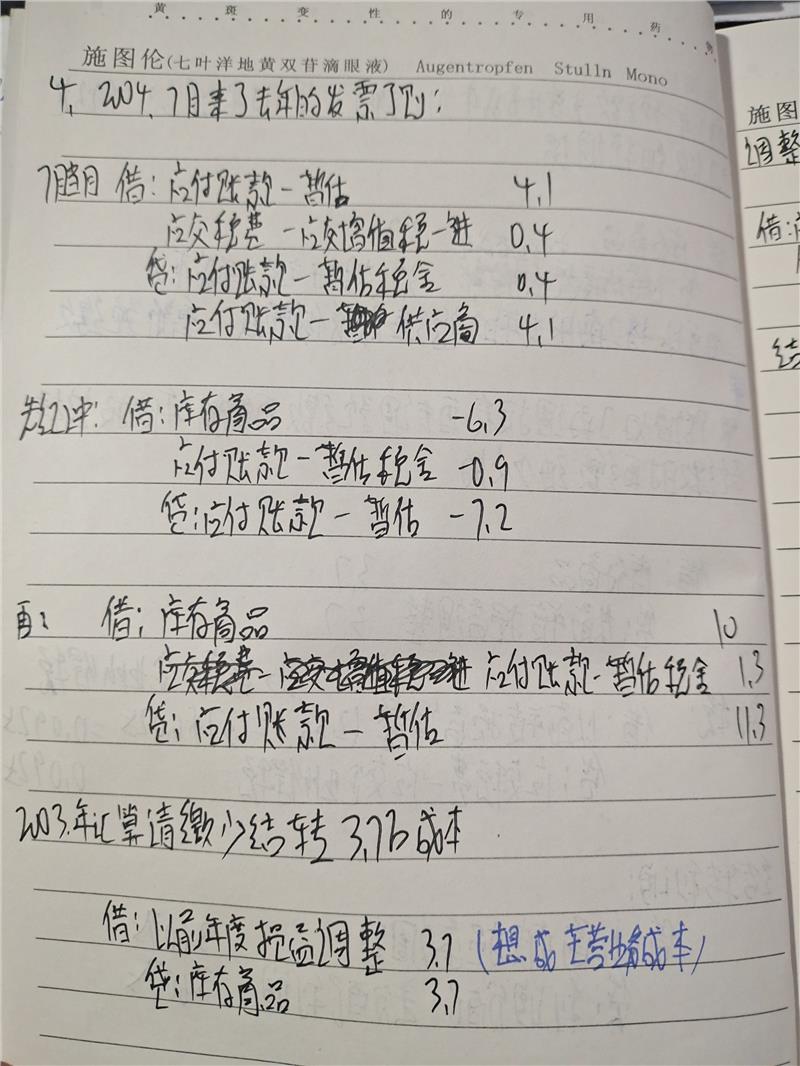 黄斑变性的专用药
施图伦(七叶洋地黄双苷滴眼液) Augentropfen Stulln Mono
4、2024.7月来了去年的发票了则:
7月当月 借:应付账款—暂估 4.1
应交税费—应交增值税—进 0.4
贷:应付账款—暂估税金 0.4
应付账款—供应商 4.1
先红冲: 借:库存商品 -6.3
应付账款—暂估税金 -0.9
贷:应付账款—暂估 -7.2
再: 借:库存商品 10
应付账款—暂估税金 1.3
贷:应付账款—暂估 11.3
2003.年汇算清缴少结转3.7的成本
借:以前年度损益调整 3.7 (想成主营业务成本)
贷:库存商品 3.7
施图
调整
借:
结